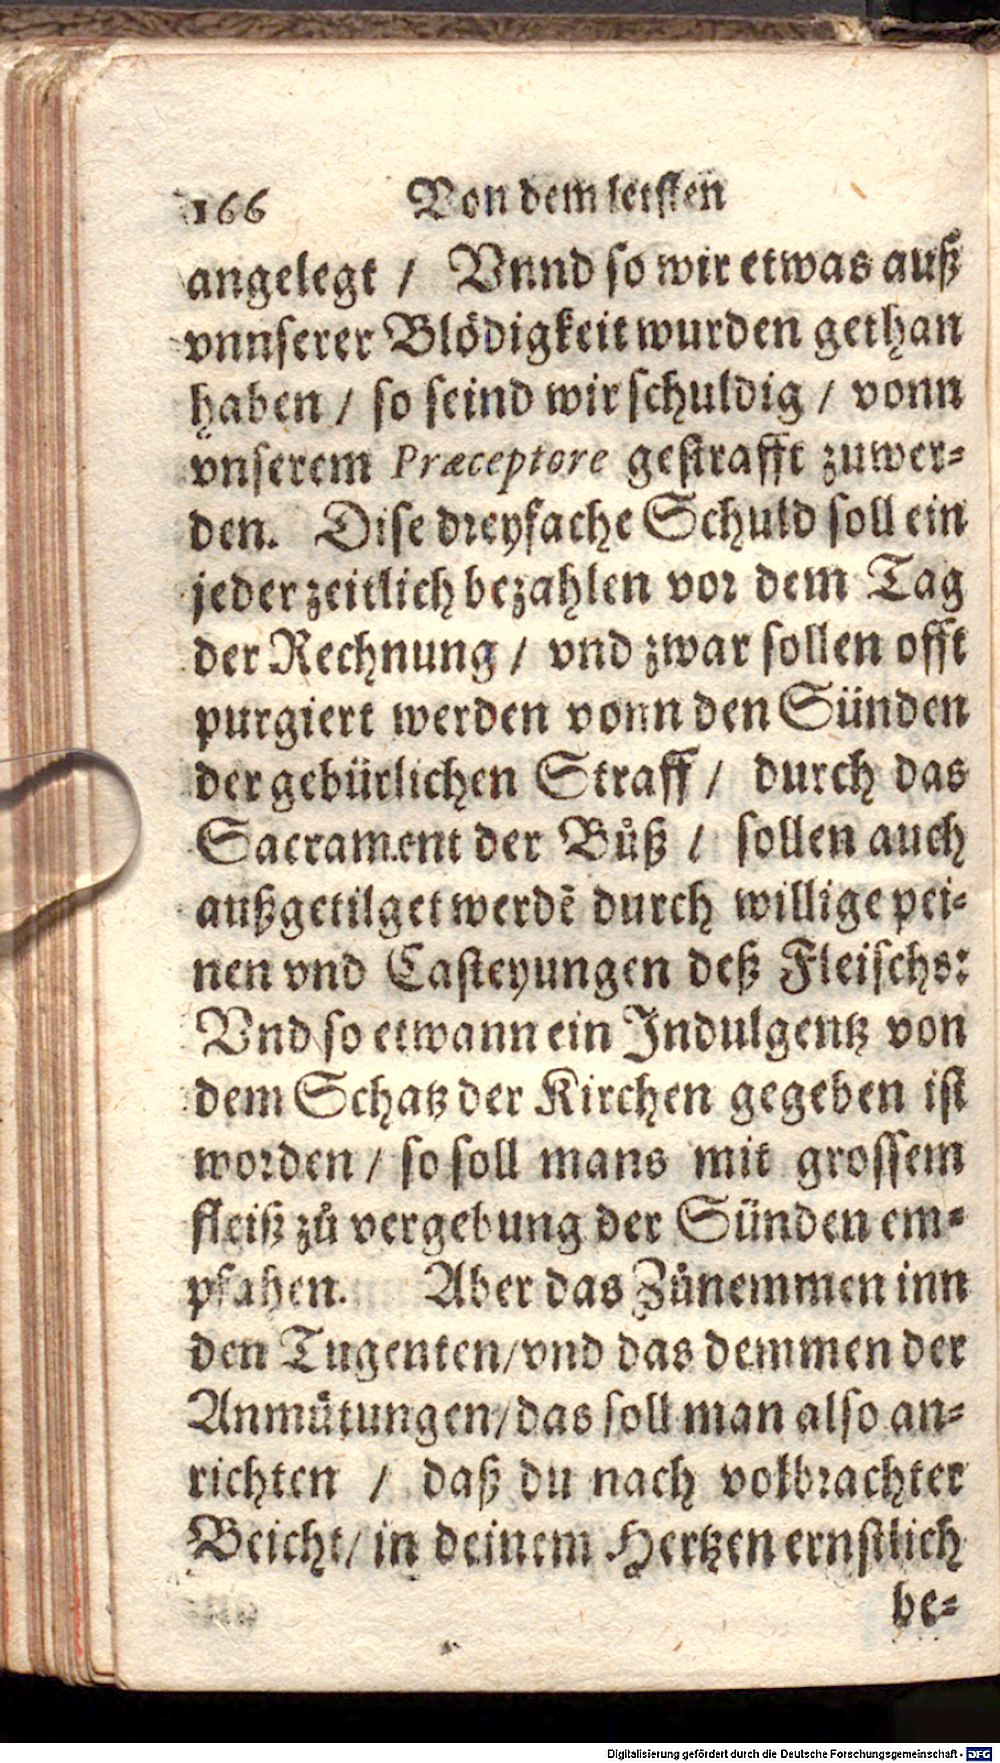 166 Von dem letsten
angelegt / Vnnd so wir etwas auß
vnnserer Blödigkeit wurden gethan
haben / so seind wir schuldig / vonn
vnserem Præceptore gestrafft zuwer⸗
den. Dise dreyfache Schuld soll ein
jeder zeitlich bezahlen vor dem Tag
der Rechnung / vnd zwar sollen offt
purgiert werden vonn den Sünden
der gebürlichen Straff / durch das
Sacrament der Bůß / sollen auch
außgetilget werdẽ durch willige pei⸗
nen vnd Casteyungen deß Fleischs:
Vnd so etwann ein Indulgentz von
dem Schatz der Kirchen gegeben ist
worden / so soll mans mit grossem
fleiß zů vergebung der Sünden em⸗
pfahen. Aber das Zůnemmen inn
den Tugenten/ vnd das demmen der
Anmůtungen/ das soll man also an⸗
richten / daß du nach volbrachter
Beicht/ in deinem Hertzen ernstlich
be⸗
Digitalisierung gefördert durch die Deutsche Forschungsgemeinschaft - DFG